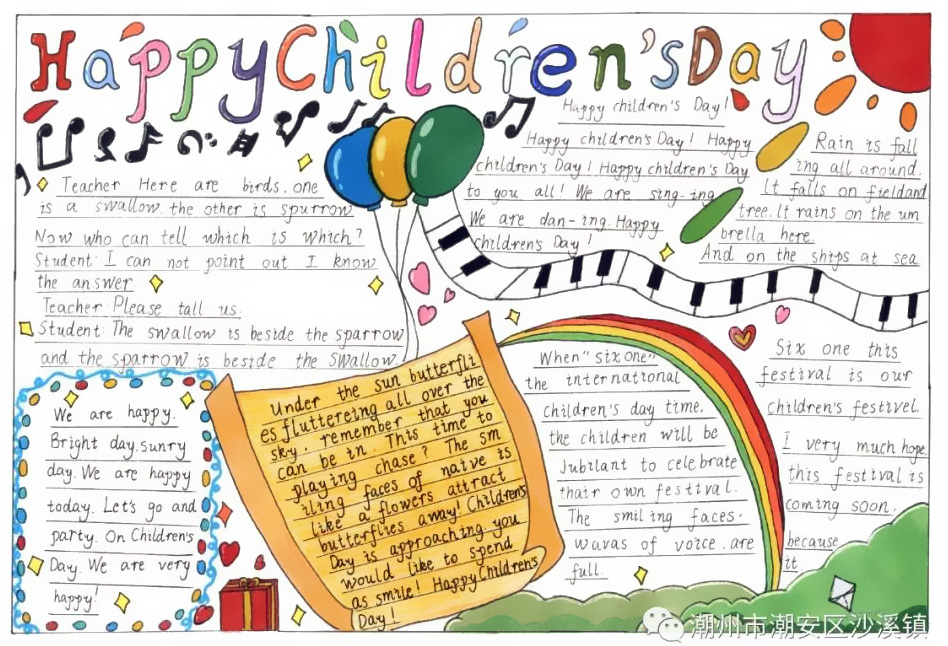 Happy Children'sDay
Teacher Here are birds. one
is a swallow. the other is spurrow
Now who can tell which is which?
Student: I can not point out I know
the answer
Teacher: Please tall us.
Student: The swallow is beside the sparrow
and the sparrow is beside the swallow
Happy children's Day!
Happy children's Day! Happy
children's Day! Happy children's Day
to you all! We are sing-ing
We are dan-ing. Happy
children's Day!
Rain is fall
ing all around.
It falls on fieldand
tree. It rains on the um
brella here.
And on the ships at sea
We are happy.
Bright day. sunry
day. We are happy
today. Let's go and
party. On Children's
Day. We are very
happy!
Under the sun butterfli
es fluttereing all over the
sky, remember that you
can be in. This time to
playing chase? The sm
iling faces of naive is
like a flowers attract
butterflies away! Children's
Day is approaching. you
would like to spend
as smile! HappyChildren's
Day!
When "six one"
the international
children's day time.
the children will be
Jubilant to celebrate
thair own festival.
The smiling faces.
wavas of voice. are
full.
Six one this
festival is our
children's festivel.
I very much hope
this festival is
coming soon.
because
it.
潮州市潮安区沙溪镇